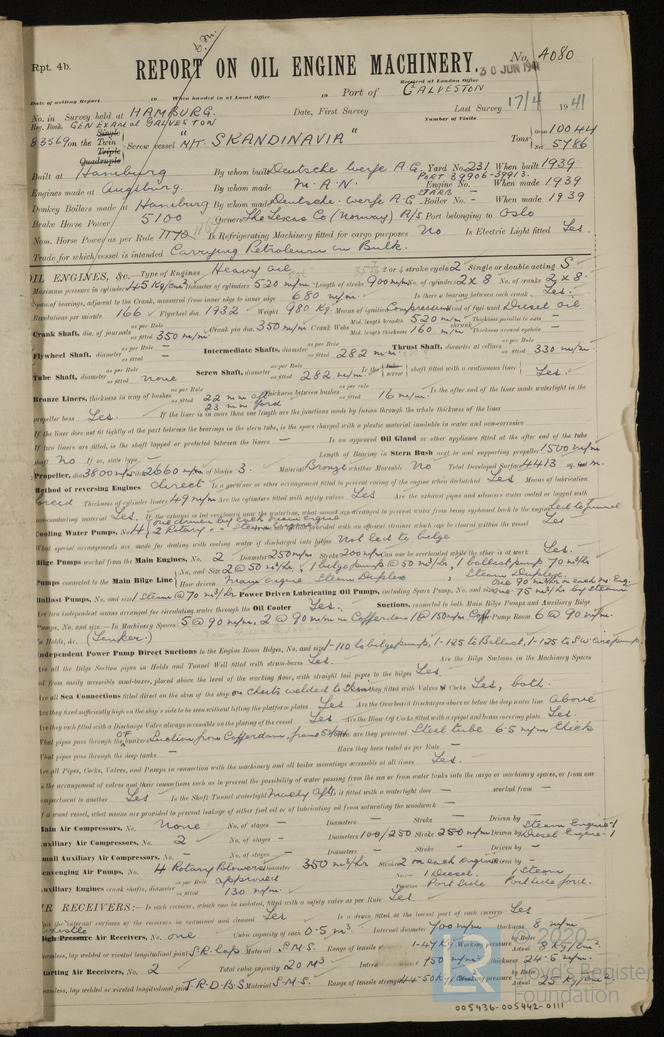 Rpt. 4b.
REPORT ON OIL ENGINE MACHINERY.
No. 4080
30 JUN 1941
Received at London Office
Date of writing Report 19 When handed in at Local Office 19 Port of GALVESTON
No. in Survey held at HAMBURG. Date, First Survey Last Survey 17/4 1941
Reg. Book. GEN EXAM at GALVESTON Number of Visits
83569 on the Single Twin Triple Quadruple Screw vessel M/T. "SKANDINAVIA" Tons Gross 10044 Net 5786
Built at Hamburg By whom built Deutsche Werfe A.G. Yard No. 231 When built 1939
Engines made at Augsburg. By whom made M.A.N. Engine No. PORT 39906-39913. When made 1939
Donkey Boilers made at Hamburg By whom made Deutsche Werfe A.G. Boiler No. - When made 1939
Brake Horse Power 5100 Owners The Texas Co (Norway) A/S Port belonging to Oslo
Nom. Horse Power as per Rule 1170 Is Refrigerating Machinery fitted for cargo purposes No Is Electric Light fitted Yes.
Trade for which vessel is intended Carrying Petroleum in Bulk.
OIL ENGINES, &c. Type of Engines Heavy oil 2 or 4 stroke cycle 2 Single or double acting S
Maximum pressure in cylinders 45 Kg/cm2 Diameter of cylinders 520 m/m Length of stroke 900 m/m No. of cylinders 2 x 8 No. of cranks 2 x 8
Span of bearings, adjacent to the Crank, measured from inner edge to inner edge 680 m/m. Is there a bearing between each crank Yes.
Revolutions per minute 166 Flywheel dia. 1932 Weight 980 Kg. Means of ignition Compression Kind of fuel used Diesel oil
Crank Shaft, dia. of journals as per Rule as fitted 350 m/m Crank pin dia. 350 m/m Crank Webs Mid. length breadth 520 m/m Mid. length thickness 160 m/m shrunk Thickness parallel to axis - Thickness around eyehole -
Flywheel Shaft, diameter as per Rule - as fitted - Intermediate Shafts, diameter as per Rule as fitted 282 m/m Thrust Shaft, diameter at collars as per Rule as fitted 330 m/m
Tube Shaft, diameter as per Rule as fitted none Screw Shaft, diameter as per Rule as fitted 282 m/m Is the tube screw shaft fitted with a continuous liner Yes.
Bronze Liners, thickness in way of bushes as per Rule as fitted 22 m/m aft 23 m/m ford Thickness between bushes as per rule as fitted 16 m/m. Is the after end of the liner made watertight in the
propeller boss Yes. If the liner is in more than one length are the junctions made by fusion through the whole thickness of the liner
If the liner does not fit tightly at the part between the bearings in the stern tube, is the space charged with a plastic material insoluble in water and non-corrosive
If two liners are fitted, is the shaft lapped or protected between the liners - Is an approved Oil Gland or other appliance fitted at the after end of the tube
shaft No If so, state type - Length of Bearing in Stern Bush next to and supporting propeller 1500 m/m
Propeller, dia. 3800 m/m 2660 m/m No. of blades 3. Material Bronze whether Moveable No Total Developed Surface 4.413 sq. feet m.
Method of reversing Engines direct Is a governor or other arrangement fitted to prevent racing of the engine when declutched Yes Means of lubrication
forced Thickness of cylinder liners 49 m/m Are the cylinders fitted with safety valves Yes Are the exhaust pipes and silencers water cooled or lagged with
non-conducting material Yes. If the exhaust is led overboard near the waterline, what means are arranged to prevent water being syphoned back to the engine Led to funnel
Cooling Water Pumps, No. 4 one driven by each main engine 2 Rotary provided with an efficient strainer which can be cleared within the vessel Yes
What special arrangements are made for dealing with cooling water if discharged into bilges Not led to bilge
Bilge Pumps worked from the Main Engines, No. 2 Diameter 250 m/m Stroke 200 m/m Can one be overhauled while the other is at work Yes.
Pumps connected to the Main Bilge Line No. and Size 2 @ 50 m³/hr, 1 bilge pump @ 50 m³/hr, 1 ballast pump 70 m³/hr
How driven Main engine Steam Duplex, Steam Duplex.
Ballast Pumps, No. and size 1 Steam @ 70 m³/hr Power Driven Lubricating Oil Pumps, including Spare Pump, No. and size one 90 m³/hr on each m. Eng. one 75 m³/hr by steam
Are two independent means arranged for circulating water through the Oil Cooler Yes. Suctions, connected to both Main Bilge Pumps and Auxiliary Bilge
Pumps, No. and size:-In Machinery Spaces 5 @ 90 m/m, 2 @ 90 m/m in Cofferdam 1 @ 150 m/m Coff. In Pump Room 6 @ 90 m/m.
In Holds, &c. (Tanker.)
Independent Power Pump Direct Suctions to the Engine Room Bilges, No. and size 1-110 to bilge pump, 1-125 to Ballast, 1-125 to S.W. Circ. pump.
Are all the Bilge Suction pipes in Holds and Tunnel Well fitted with strum-boxes Yes. Are the Bilge Suctions in the Machinery Spaces
led from easily accessible mud-boxes, placed above the level of the working floor, with straight tail pipes to the bilges Yes
Are all Sea Connections fitted direct on the skin of the ship on chests welded to Skin Are they fitted with Valves or Cocks Yes, both.
Are they fixed sufficiently high on the ship's side to be seen without lifting the platform plates Yes Are the Overboard Discharges above or below the deep water line above
Are they each fitted with a Discharge Valve always accessible on the plating of the vessel Yes Are the Blow Off Cocks fitted with a spigot and brass covering plate Yes.
What pipes pass through the bunkers Suction from Cofferdams, How are they protected Steel tube 6.5 m/m thick
What pipes pass through the deep tanks - Have they been tested as per Rule -
Are all Pipes, Cocks, Valves, and Pumps in connection with the machinery and all boiler mountings accessible at all times Yes.
Is the arrangement of valves and their connections such as to prevent the possibility of water passing from the sea or from water tanks into the cargo or machinery spaces, or from one
compartment to another Yes Is the Shaft Tunnel watertight Mach'y aft. Is it fitted with a watertight door - worked from -
If a wood vessel, what means are provided to prevent leakage of either fuel oil or of lubricating oil from saturating the woodwork -
Main Air Compressors, No. None No. of stages - Diameters - Stroke - Driven by -
Auxiliary Air Compressors, No. 2 No. of stages - Diameters 100/250 Stroke 250 m/m Driven by Steam Engine-1 Diesel Engine-1
Small Auxiliary Air Compressors, No. - No. of stages - Diameters - Stroke - Driven by -
Scavenging Air Pumps, No. 4 Rotary Blowers Diameter 350 m³/hr Stroke 2 on each engine Driven by
Auxiliary Engines crank shafts, diameter as per Rule approved as fitted 130 m/m. No. 1 Diesel. 1 Steam Position Port Side Port side ford.
AIR RECEIVERS:- Is each receiver, which can be isolated, fitted with a safety valve as per Rule Yes.
Can the internal surfaces of the receivers be examined and cleaned Yes Is a drain fitted at the lowest part of each receiver Yes
Whistle
High Pressure Air Receivers, No. one Cubic capacity of each 0.5 m³ Internal diameter 700 m/m thickness 8 m/m
Seamless, lap welded or riveted longitudinal joint S.R. Lap Material S.M.S. Range of tensile Working pressure by Rules Actual 8 Kg/cm²
Starting Air Receivers, No. 2 Total cubic capacity 20 M³ Internal thickness 24.5 m/m.
Seamless, lap welded or riveted longitudinal joint T.R.D.B.S Material S.M.S. Range of tensile strength 44-50 Kg/ pressure by Rules Actual 25 Kg/cm²
© 2020
Lloyd's Register
Foundation
005436-005442-0111